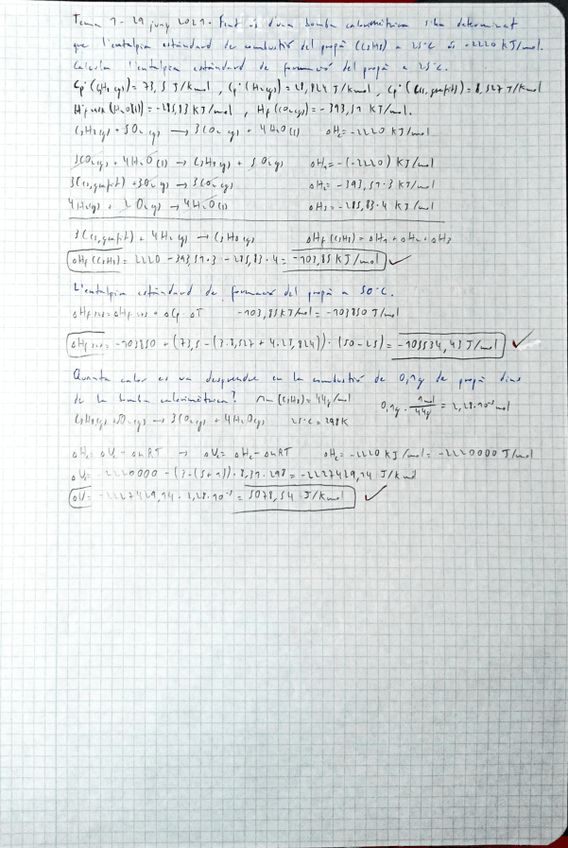 Tema 1- 29 juny 2021. Fent ús d'una bomba calorimètrica s'ha determinat
que l'entalpia estàndard de combustió del propà (C3H8) a 25°C és -2220 KJ/mol.
Calcula l'entalpia estàndard de formació del propà a 25°C.
Cp(C3H8,g)=73,5 J/Kmol, Cp(H2,g)=28,824 J/Kmol, Cp(C(s,grafit))=8,527 J/Kmol
(H2O(l))=-285,83 KJ/mol, Hf(CO2,g)=-393,51 KJ/mol.
C3H8,g + 5O2,g → 3CO2,g + 4H2O(l) ΔHc=-2220 KJ/mol
3CO2,g + 4H2O(l) → C3H8,g + 5O2,g ΔH1=-(-2220) KJ/mol
3C(s,grafit) + 3O2,g → 3CO2,g ΔH2=-393,51·3 KJ/mol
4H2,g + 2O2,g → 4H2O(l) ΔH3=-285,83·4 KJ/mol
3C(s,grafit) + 4H2,g → C3H8,g ΔHf(C3H8)=ΔH1+ΔH2+ΔH3
ΔHf(C3H8)=2220-393,51·3-285,83·4=-103,85 KJ/mol
L'entalpia estàndard de formació del propà a 50°C.
-103,85 KJ/mol=-103850 J/mol
=-103850+(73,5-(3·8,527+4·28,824))·(50-25)=-105534,43 J/mol
Quanta calor es va desprendre en la combustió de 0,1g de propà dins
de la bomba calorimètrica? Mm(C3H8)=44g/mol 0,1g·1mol/44g=2,28·10⁻³mol
→ 3CO2,g + 4H2O,g 25°C=298K
ΔH=ΔU+ΔnRT → ΔU=ΔH-ΔnRT ΔH=-2220 KJ/mol=-2220000 J/mol
ΔU=-2220000-(3-(5+1))·8,31·298=
ΔU= ·2,28·10⁻³=5078,54 J/Kmol